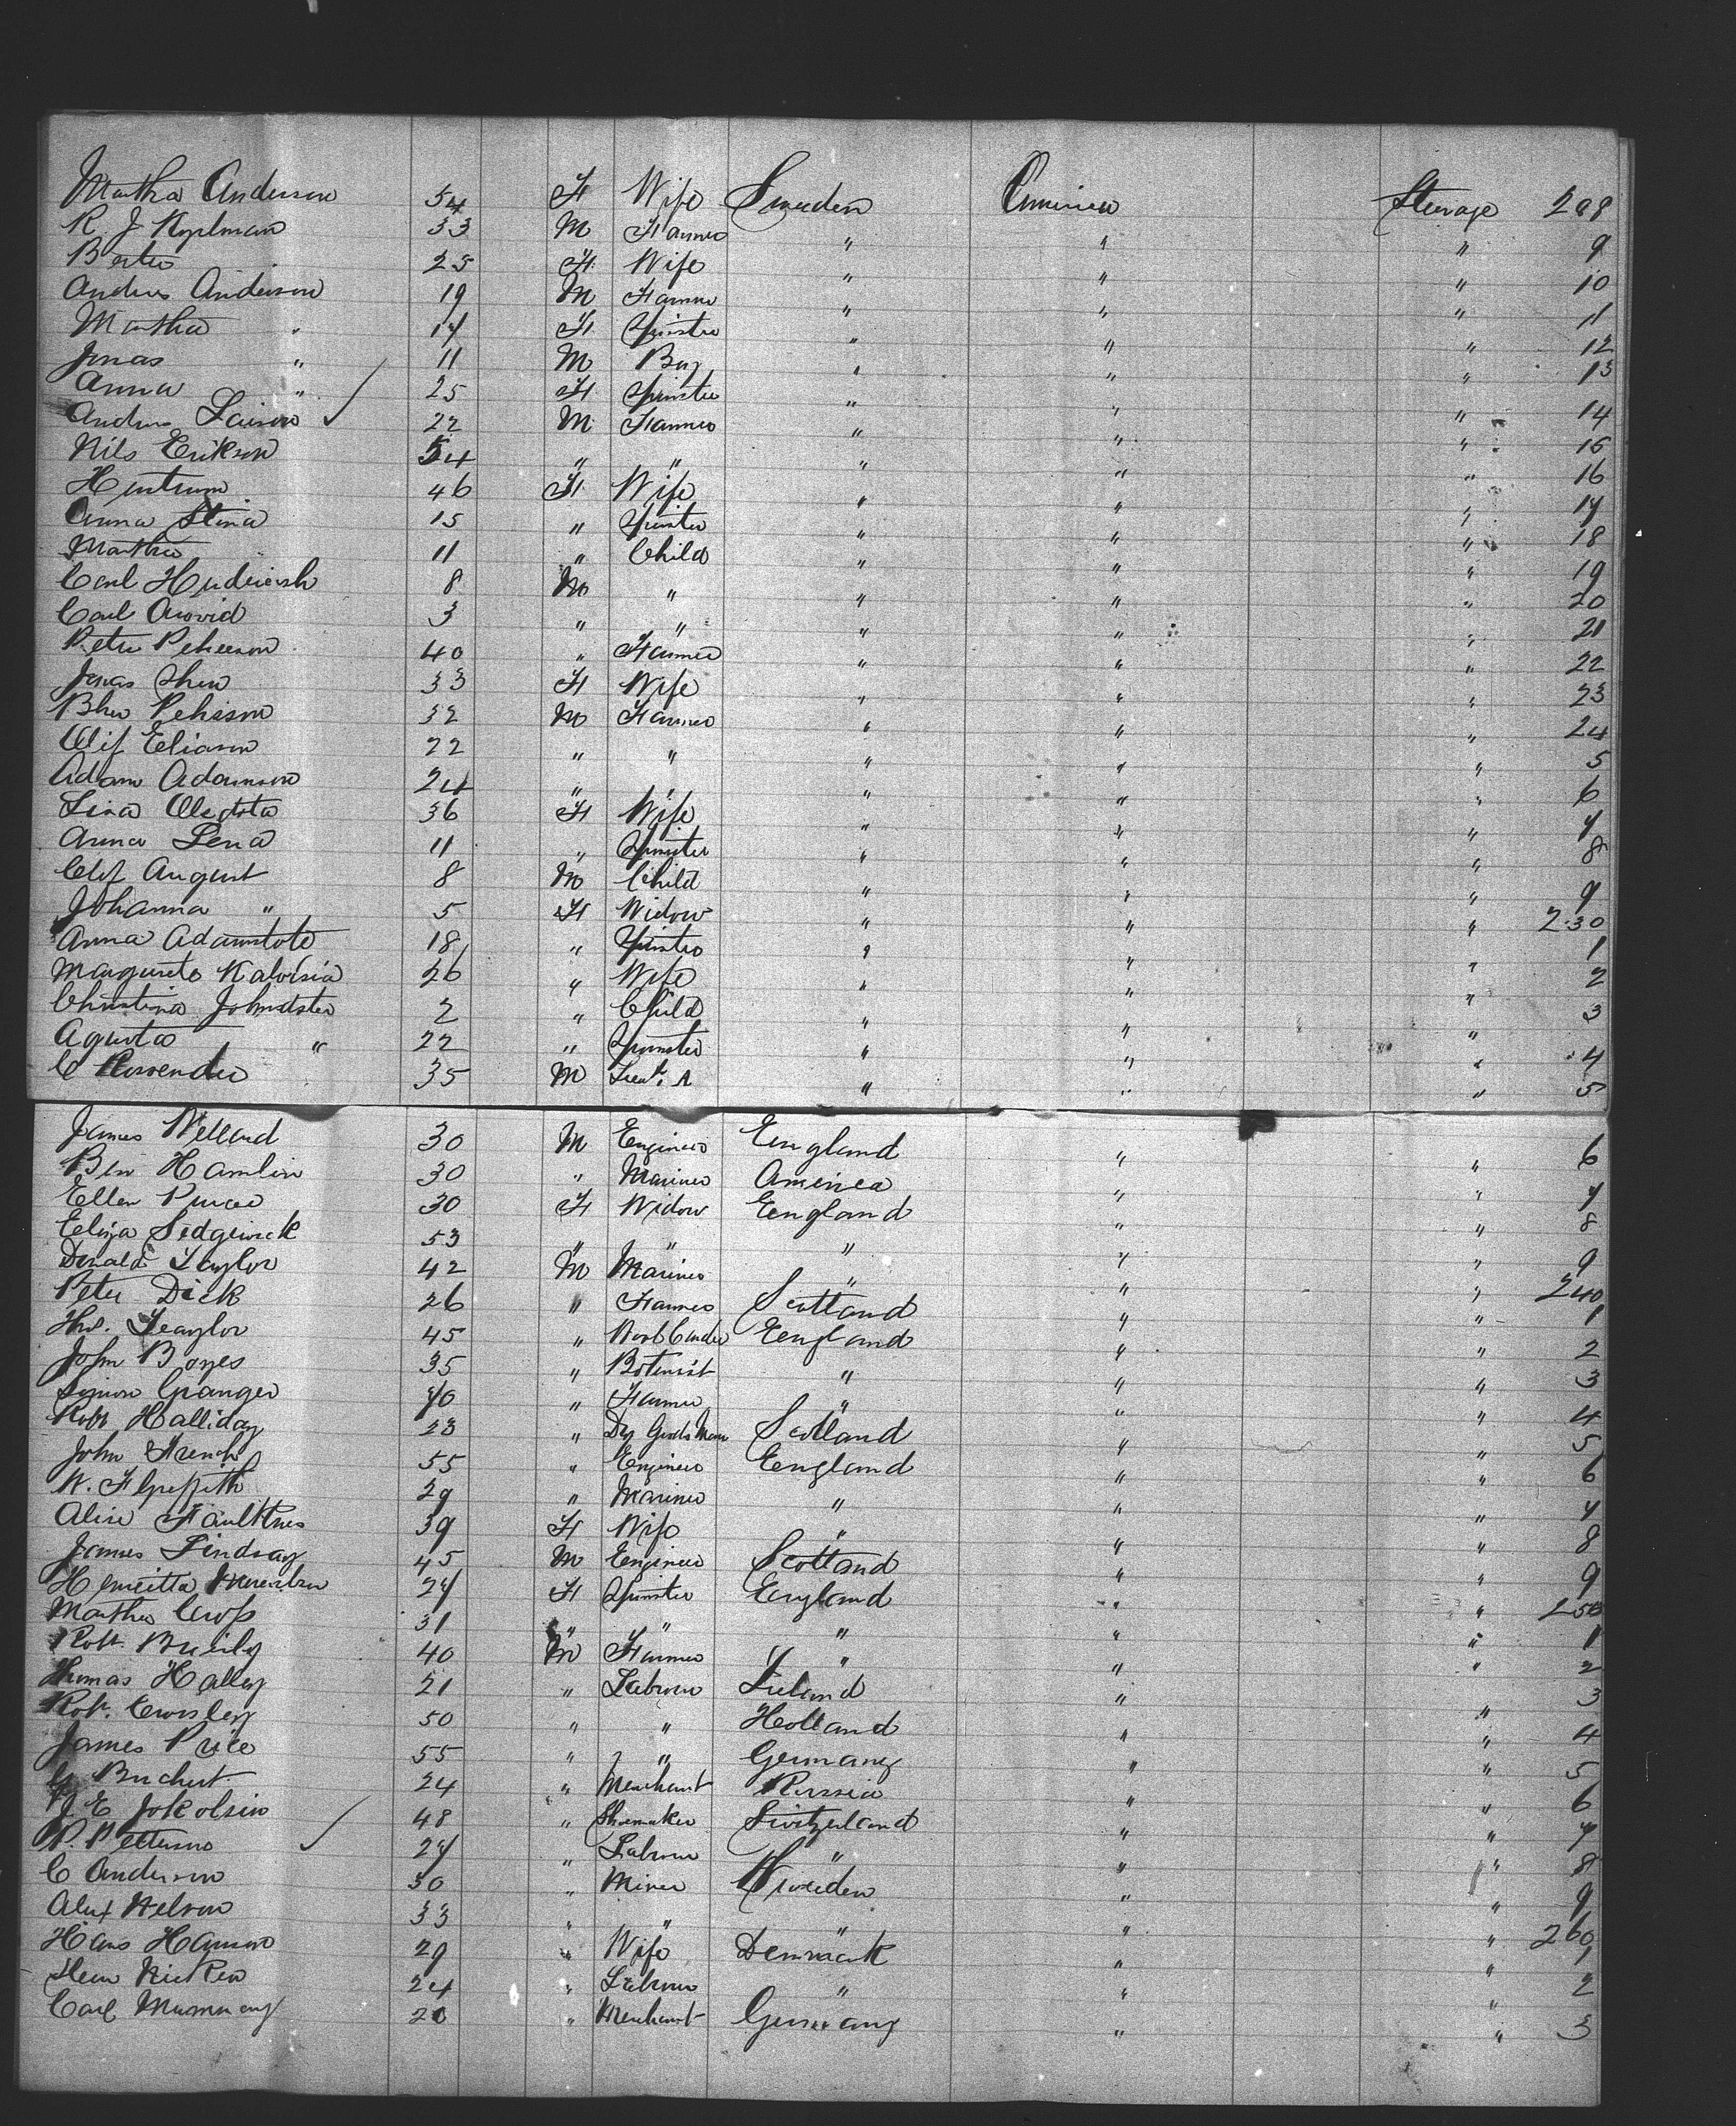 Martha Anderson 54 F Wife Sweden America Steerage 208
R J Kyrlman 33 M Farmer " " " 9
Berta 25 F Wife " " " 10
Andres Anderson 19 M Farmer " " " 11
Martha " 17 F Spinster " " " 12
Jonas " 11 M Boy " " " 13
Anna " 25 F Spinster " " " 14
Andres Larson 22 M Farmer " " " 15
Nils Erikson 54 " " " " " 16
46 F Wife " " " 17
Anna Stina 15 " Spinster " " " 18
Martha 11 " Child " " " 19
Carl 8 M " " " " 20
Carl Arovid 3 " " " " " 21
Petter Peherson 40 " Farmer " " " 22
Jonas 33 F Wife " " " 23
Pehrson 32 M Farmer " " " 24
Olif Eliason 22 " " " " " 5
Adam Adamson 24 " " " " " 6
Lisa 36 F Wife " " " 7
Anna Lena 11 " Spinster " " " 8
Olof August 8 M Child " " " 9
Johanna " 5 F Widow " " " 230
Anna 18 " Spinster " " " 1
Margreta 26 " Wife " " " 2
Christina 2 " Child " " " 3
Agusta " 22 " Spinster " " " 4
C 35 M " " " 5
James Welland 30 M Engineer England " " 6
Ben Hamlin 30 " Mariner America " " 7
Ellen 30 F Widow England " " 8
Eliza Sedgwick 53 " " " " " 9
Donald Taylor 42 M Mariner " " " 240
Peter Dick 26 " Farmer Scotland " " 1
Taylor 45 " England " " 2
John Boyes 35 " Botanist " " " 3
Simon Granger 40 " Farmer " " " 4
Robt Halliday 23 " Dry Goods Man Scotland " " 5
John French 55 " Engineer England " " 6
W. F Griffith 29 " Mariner " " " 7
Alice Faulkner 39 F Wife " " " 8
James Lindsay 45 M Engineer Scotland " " 9
Henrietta 27 F Spinster England " " 250
Martha Cross 31 " " " " " 1
Robt. 40 M Farmer " " " 2
Thomas Halley 21 " Laborer Ireland " " 3
Robt. Crossley 50 " " Holland " " 4
James Price 55 " " Germany " " 5
Buchert 24 " Merchant Russia " " 6
J E Jokolsin 48 " Shoemaker Switzerland " " 7
P. Petterson 27 " Laborer " " " 8
C Anderson 30 " Miner Sweden " " 9
Alex Nelson 33 " " " " " 260
Hans Hanson 29 " Wife Denmark " " 1
24 " Laborer " " " 2
Carl 20 " Merchant Germany " " 3